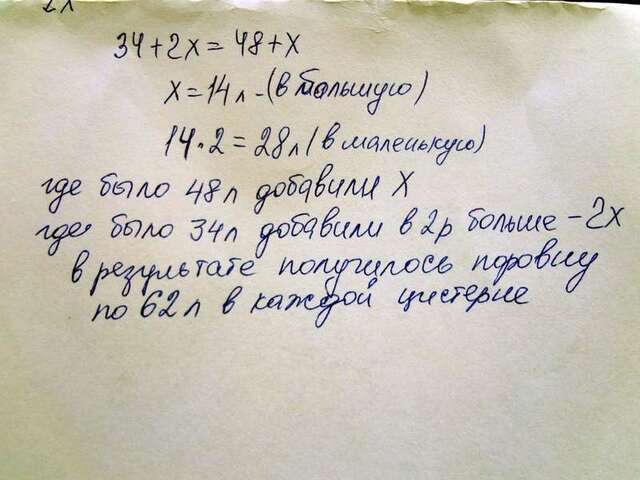 34+2x=48+x
x=14л-(в большую)
14·2=28л(в маленькую)
где было 48л добавили X
где было 34л добавили в 2р больше-2x
в результате получилось поровну
по 62л в каждой цистерне